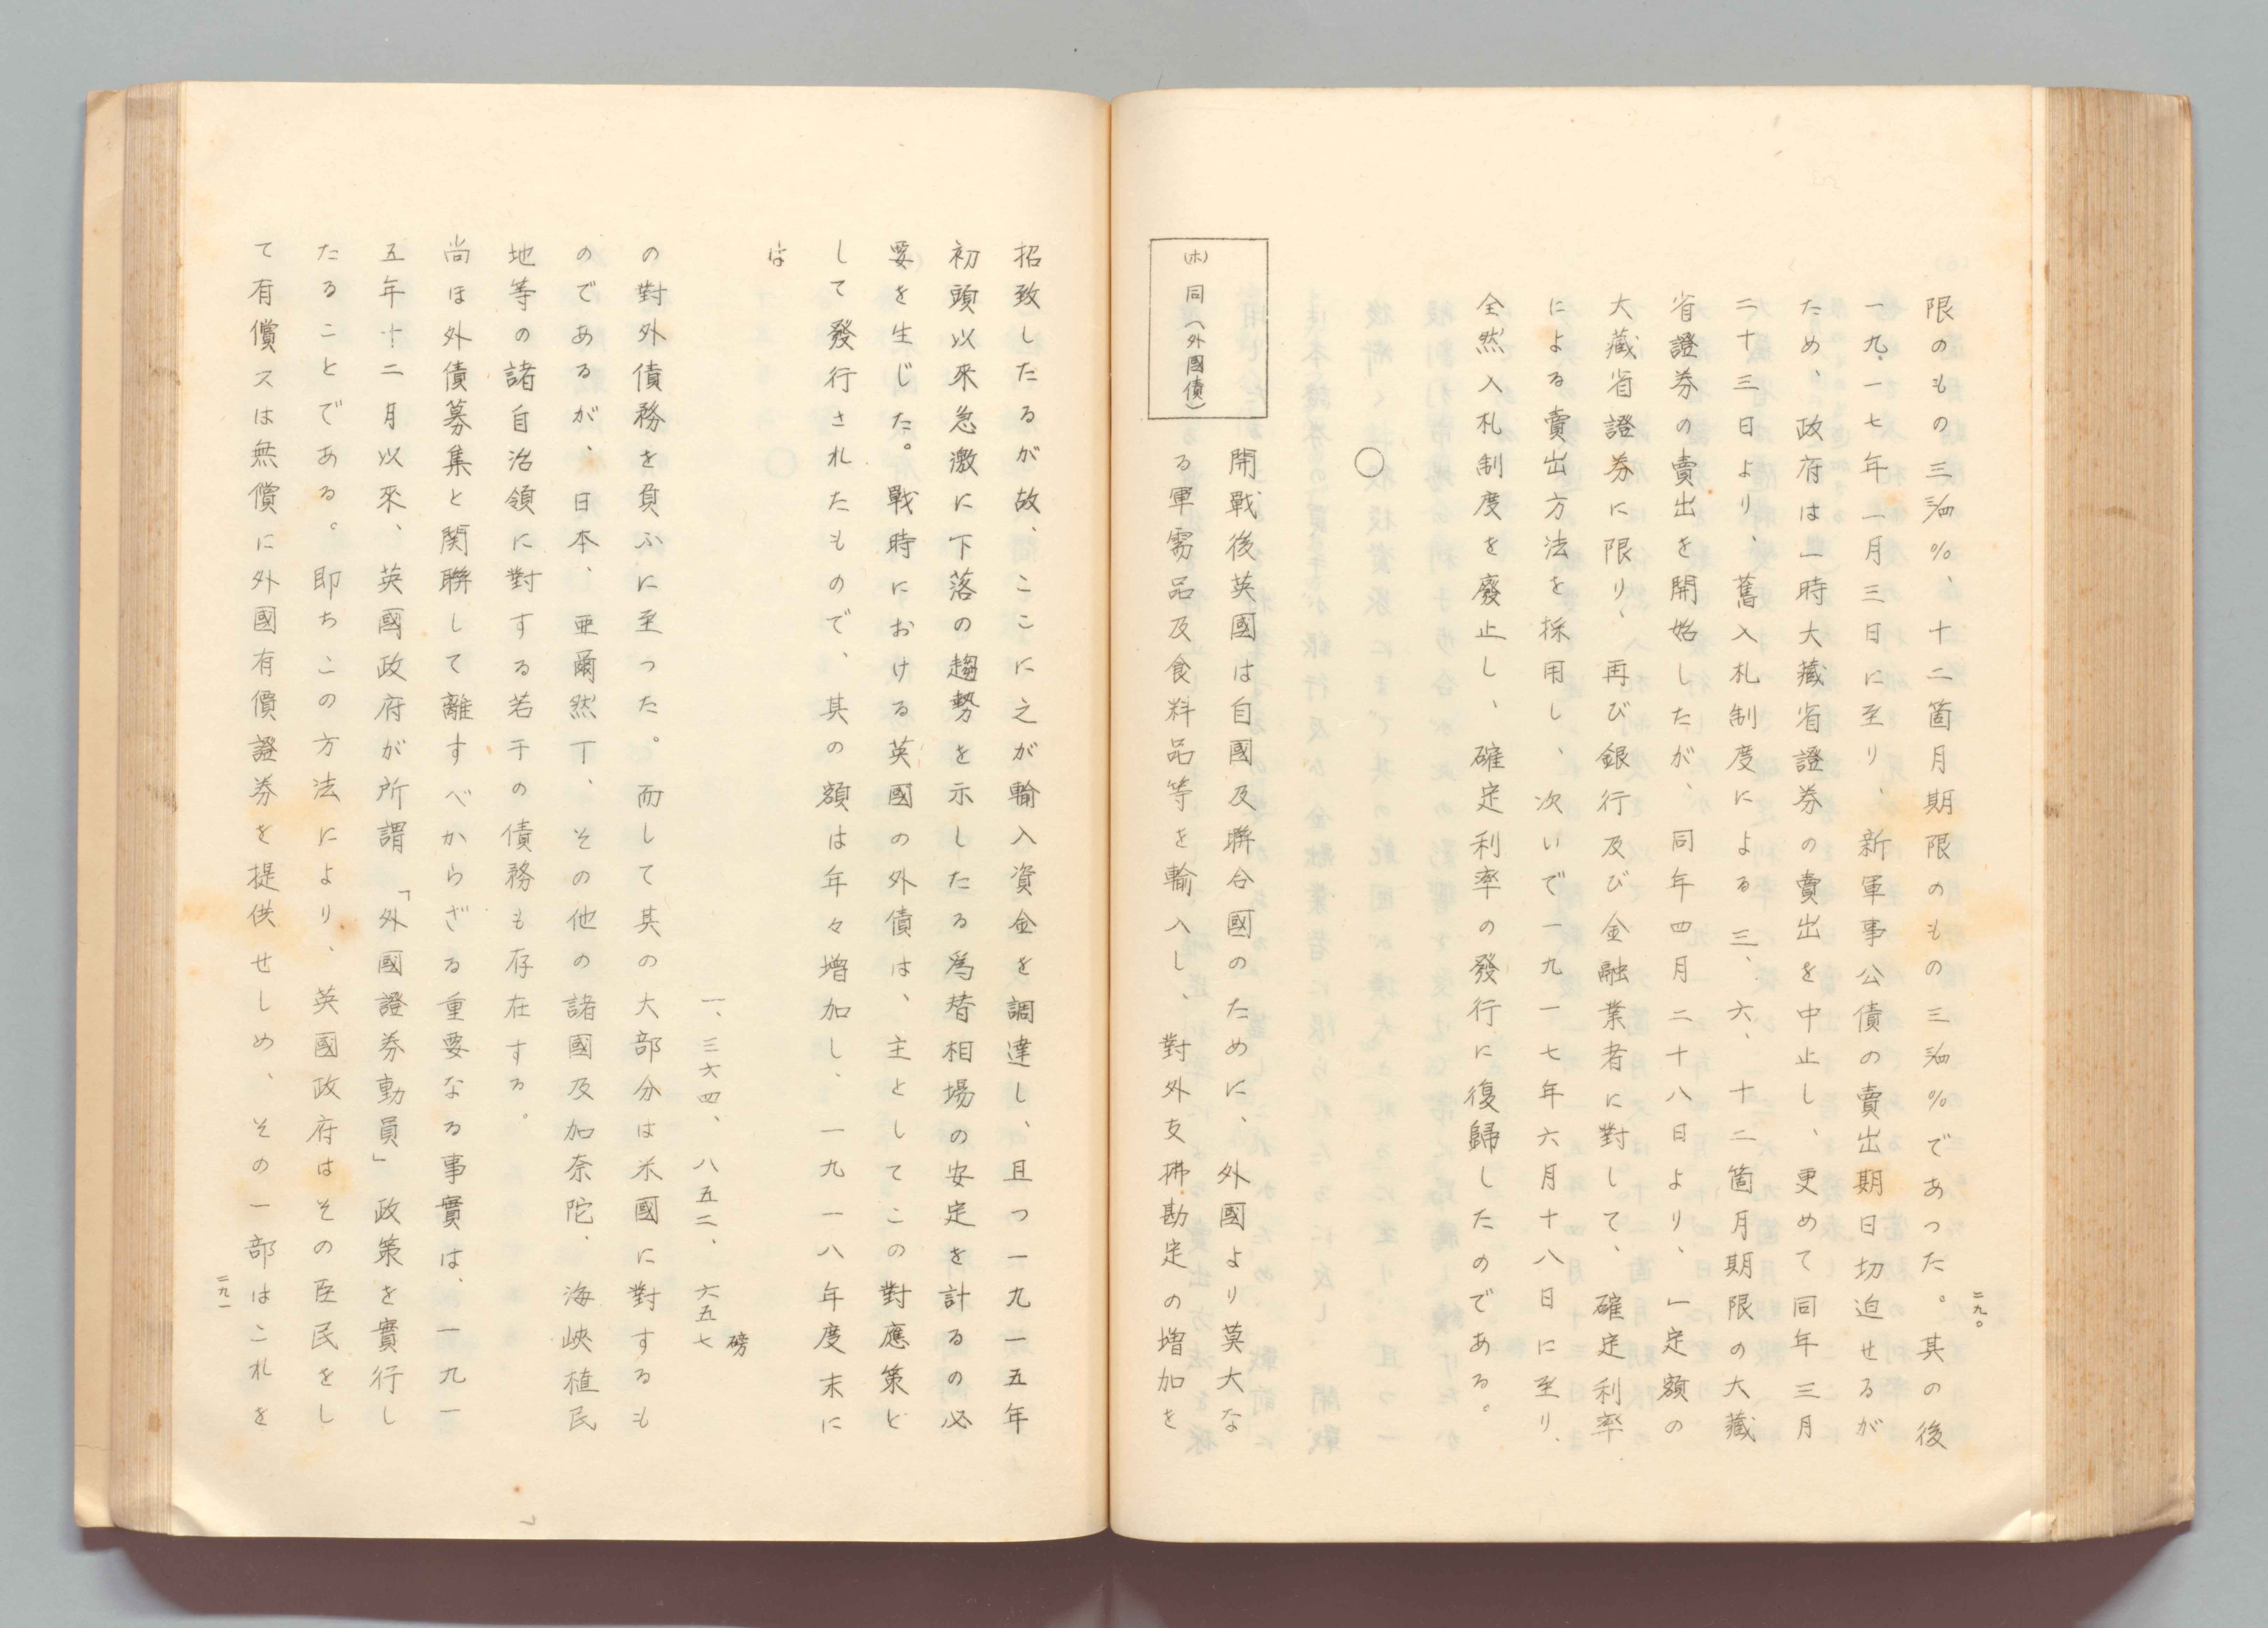 二九〇
限のもの三¾%、十二箇月期限のものの三¾%であつた。其の後
一九一七年一月三日に至り、新軍事公債の賣出期日切迫せるが
ため、政府は一時大藏省證券の賣出を中止し、更めて同年三月
二十三日より、舊入札制度による三、六、十二箇月期限の大藏
省證券の賣出を開始したが、同年四月二十八日より、一定額の
大藏省證券に限り、再び銀行及び金融業者に對して、確定利率
による賣出方法を採用し、次いで一九一七年六月十八日に至り、
全然入札制度を廢止し、確定利率の發行に復歸したのである。
○
(ホ)同(外國債)
開戰後英國は自國及聯合國のために、外國より莫大な
る軍需品及食料品等を輸入し、對外支拂勘定の増加を
招致したるが故、ここに之が輸入資金を調達し、且つ一九一五年
初頭以來急激に下落の趨勢を示したる爲替相場の安定を計るの必
要を生じた。戰時における英國の外債は、主としてこの對應策と
して發行されたもので、其の額は年々増加し、一九一八年度末に
は
一、三六四、八五二、六五七磅
の對外債務を負ふに至つた。而して其の大部分は米國に對するも
のであるが、日本、亜爾然丁、その他の諸國及加奈陀、海峽植民
地等の諸自治領に對する若干の債務も存在する。
尚ほ外債募集と関聯して離すべからざる重要なる事實は、一九一
五年十二月以來、英國政府が所謂「外國證券動員」政策を實行し
たることである。即ちこの方法により、英國政府はその臣民をし
て有償又は無償に外國有價證券を提供せしめ、その一部はこれを
二九一